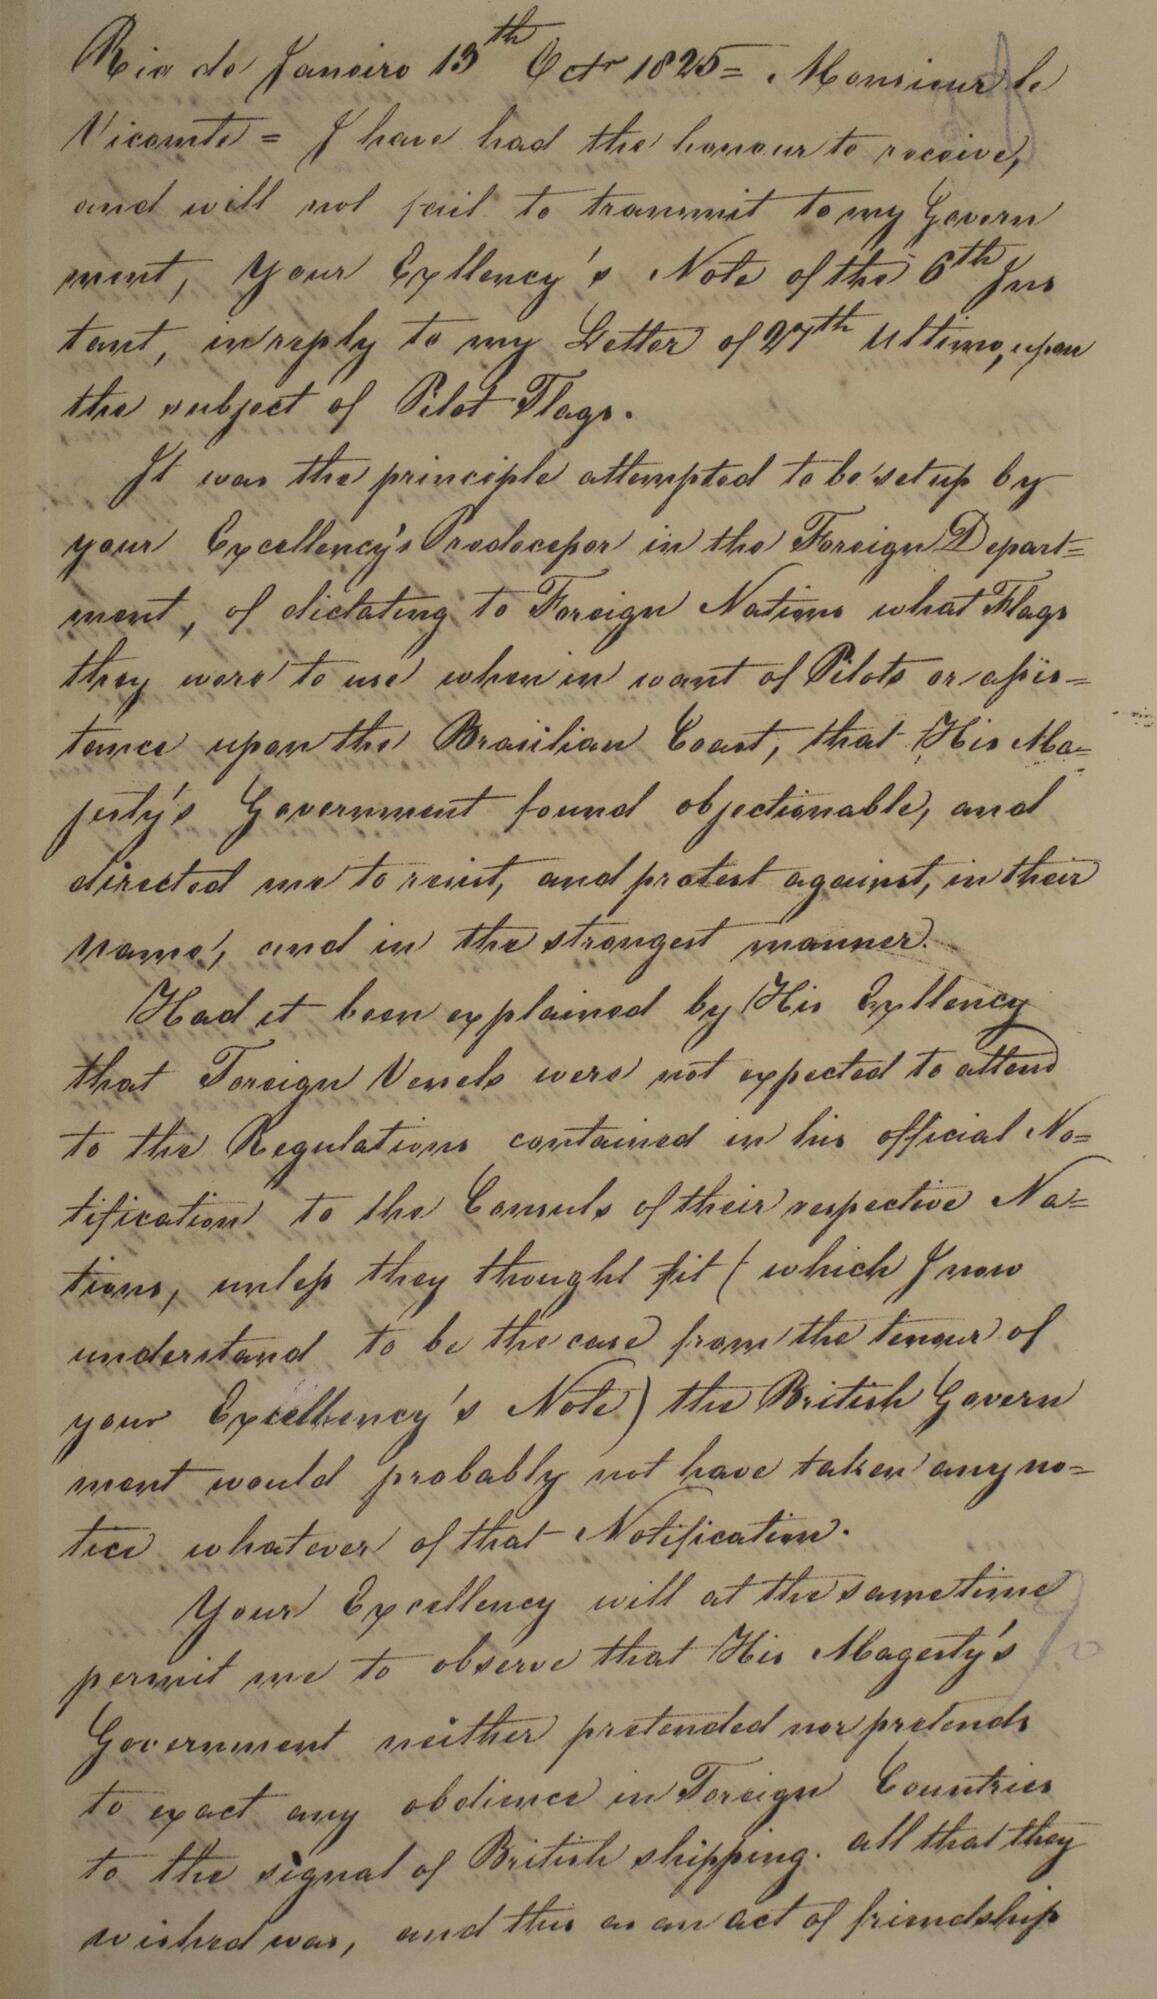 Rio de Janeiro 13th Octr 1825= Monsieur le
Vicomte = I have had the honour to receive,
and will not fail to transmit to my Govern
ment, Your Exllency's Note of the 6th Ins
tant, in reply to my Letter of 27th Ultimo, upon
the subject of Pilot Flags.
It was the principle attempted to be set up by
your Excellency's Predecessor in the Foreign Depart=
ment, of dictating to Foreign Nations what Flags
they were to use when in want of Pilots or assis=
tance upon the Brasilian Coast, that His Ma=
jesty's Government found objectionable, and
directed me to resist, and protest against, in their
name, and in the strongest manner.
Had it been explained by His Exllency
that Foreign Vessels were not expected to attend
to the Regulations contained in his official No=
tification to the Consuls of their respective Na=
tions, unless they thought fit ( which I now
understand to be the case from the tenour of
your Excellency's Note) the British Govern
ment would probably not have taken any no=
tice whatever of that Notification.
Your Excellency will at the same time
permit me to observe that His Magesty's
Government neither pretended nor pretends
to exact any obdience in Foreign Countries
to the signal of British shipping. all that they
wished was, and this as an act of friendship